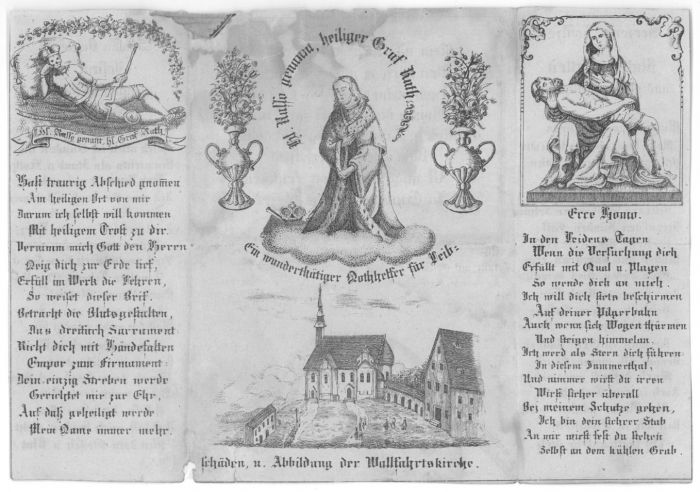 hl. Rasso genant, hl. Graf Rath.
Hast traurig Abschied gnom̄en
Am heiligen Ort von mir
Darum ich selbst will kommen
Mit heiligem Trost zu dir.
Vernimm mich Gott den Herren
Neig dich zur Erde tief,
Erfüll im Werk die Lehren,
So weiset dieser Brif.
Betracht die Blutsgestalten,
Das dreifach Sacrament
Richt dich mit Händefalten
Empor zum Firmament.
Dein einzig Streben werde
Gerichtet mir zur Ehr,
Auf daß geheiligt werde
Mein Name immer mehr.
hl. Rasso genannt, heiliger Graf Rath
Ein wunderthätiger Nothhelfer für Leib-
schäden, u. Abbildung der Wallfahrtskirche.
Ecce Homo.
In den Leidens Tagen
Wenn die Versuchung dich
Erfüllt mit Qual u. Plagen
So wende dich an mich.
Ich will dich stets beschirmen
Auf deiner Pilgerbahn
Auch wenn sich Wogen thürmen
Und steigen himmelan.
Ich werd als Stern dich führen
In diesem Jammerthal,
Und nimmer wirst du irren
Wirst sicher überall
Bei meinem Schutze gehen,
Ich bin dein sichrer Stab
An mir wirst fest du stehen
Selbst an dem kühlen Grab.